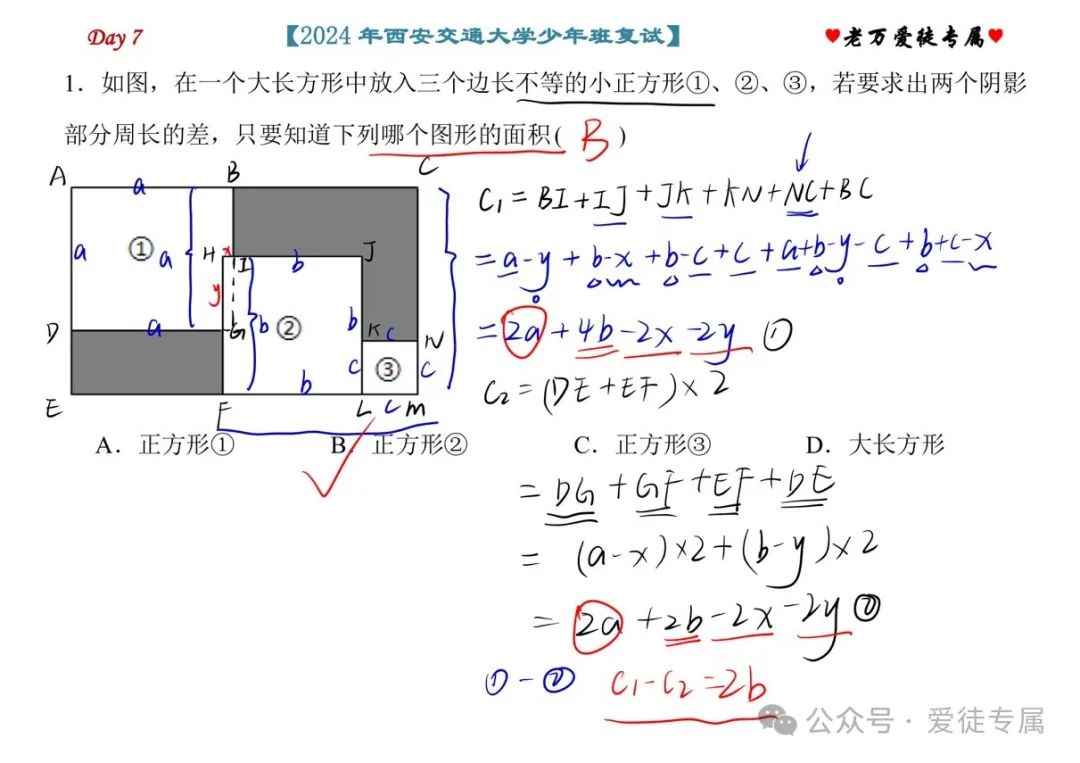 Day 7 【2024 年西安交通大学少年班复试】 ♥老万爱徒专属♥
1．如图，在一个大长方形中放入三个边长不等的小正方形①、②、③，若要求出两个阴影
部分周长的差，只要知道下列哪个图形的面积( B )
A a B C
C₁=BI+IJ+JK+KN+NC+BC
a ① a H x I b J
=a-y+b-x+b-c+c+a+b-y-c+b+c-x
y
D a G b ② b K c N
=2a+4b-2x-2y ①
c ③ c
b
C₂=(DE+EF)×2
E F L c M
A．正方形① B．正方形② C．正方形③ D．大长方形
=DG+GF+EF+DE
=(a-x)×2+(b-y)×2
=2a+2b-2x-2y②
①-② C₁-C₂=2b
公众号·爱徒专属